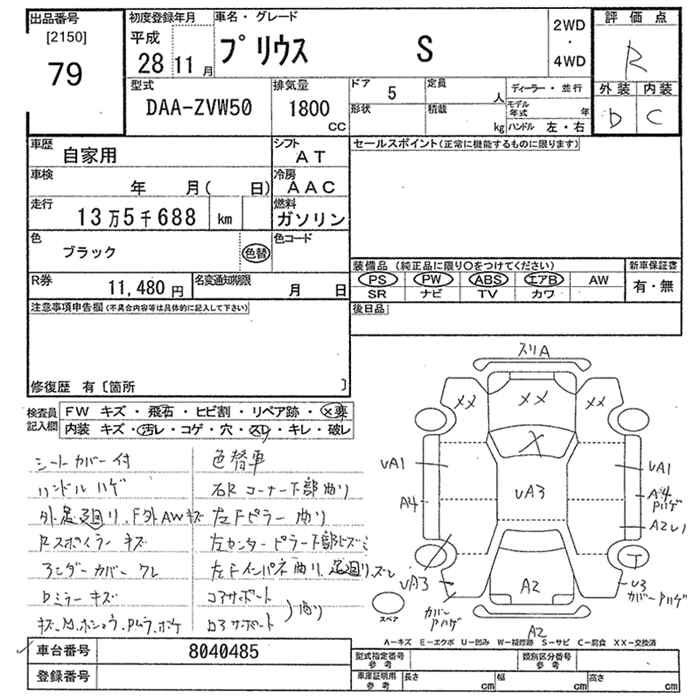 出品番号
[2150]
79
初度登録年月
平成
28 11 月
車名・グレード
プリウス S
2WD
・
4WD
評価点
R
外装 内装
D C
型式
DAA-ZVW50
排気量
1800
CC
ドア 5
定員 人
形状
積載 kg
ディーラー・並行
モデル年式 年
ハンドル 左・右
車歴
自家用
シフト
AT
セールスポイント(正常に機能するものに限ります)
車検
年 月( 日)
冷房
AAC
走行
13万5千688 km
燃料
ガソリン
色
ブラック
色替
色コード
装備品(純正品に限り〇をつけてください)
PS PW ABS エアB AW
SR ナビ TV カワ
新車保証書
有・無
R券
11,480 円
名変通知期限
月 日
後日品
注意事項申告欄(不具合内容等は具体的に記入して下さい)
修復歴 有〔箇所 〕
検査員記入欄
FW キズ・飛石・ヒビ割・リペア跡・×要
内装 キズ・汚レ・コゲ・穴・スレ・キレ・破レ
シートカバー付
ハンドルハゲ
外足廻り、F外AWキズ
Rスポイラーキズ
アンダーカバークレ
Dミラーキズ
色替車
右Rコーナー下部曲り
左Fピラー曲り
左センターピラー下部ヒズミ
左Fインパネ曲り、足廻りズレ
コアサポート
ロアサポート
曲り
スリA
××
××
××
×
UA1
UA1
UA3
A4
A4
Pハゲ
A2
UA3
U3
カバーPハゲ
カバー
Pハゲ
T
A2
スペア
A-キズ E-エクボ U-凹み W-補修跡 S-サビ C-腐食 XX-交換済
車台番号
8040485
登録番号
型式指定番号
参考
類別区分番号
参考
車庫証明用
参考
長さ cm
幅 cm
高さ cm